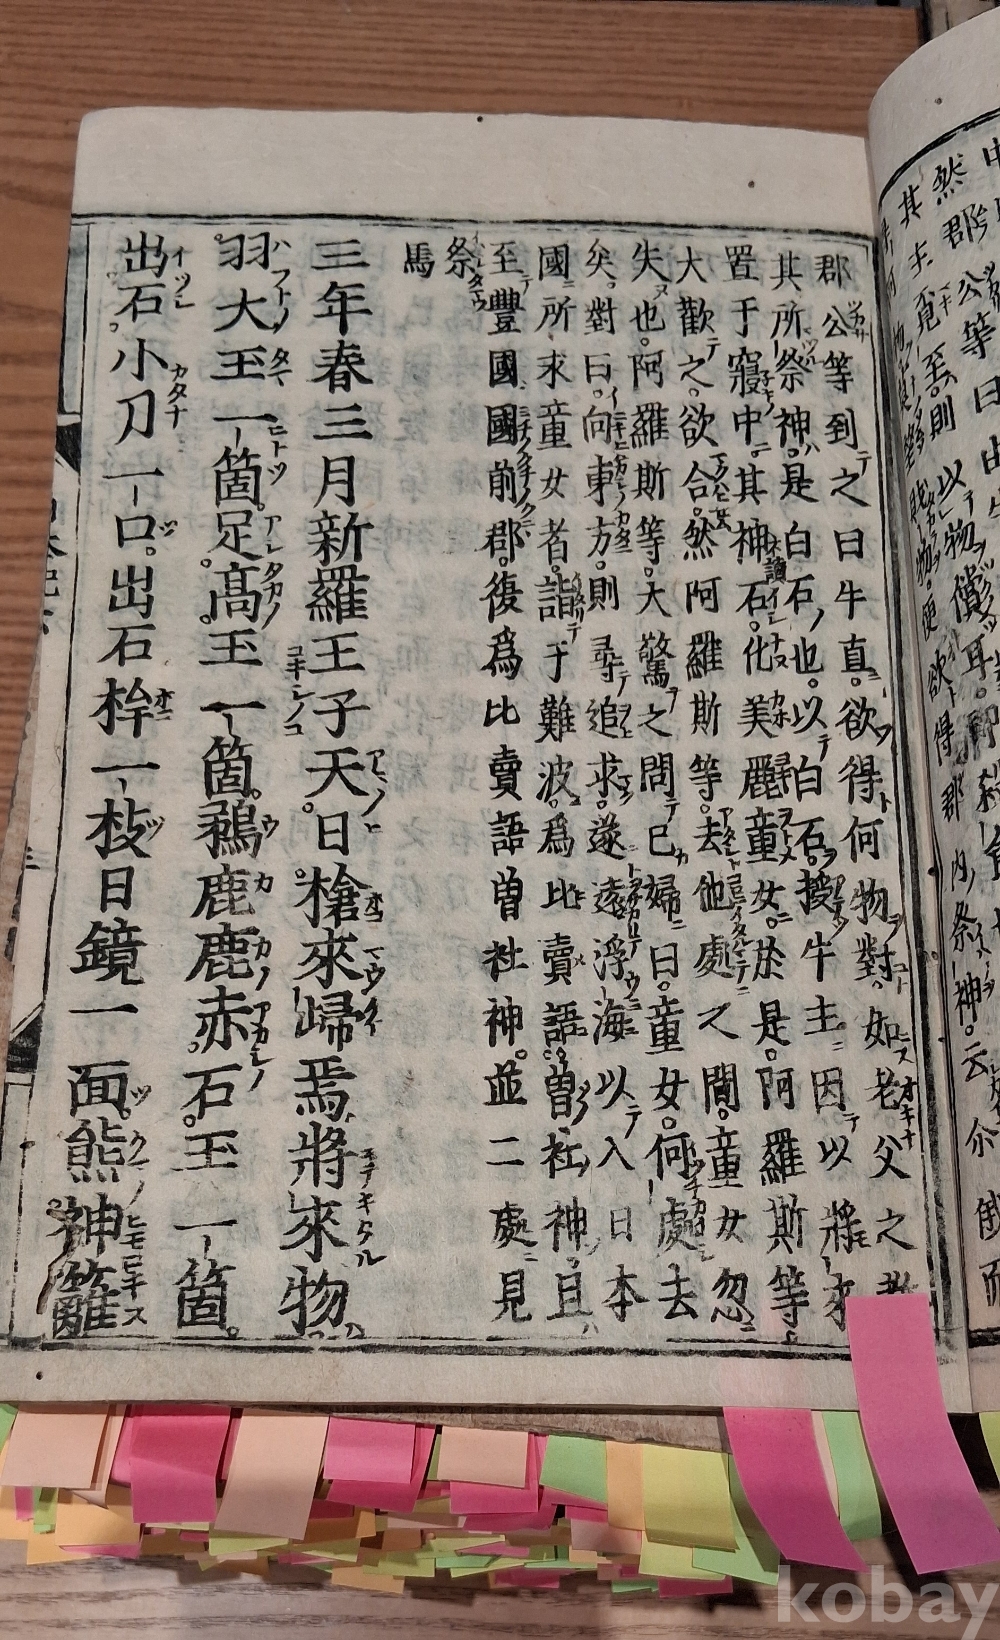 郡公等到之曰牛直欲得何物對如老父之
其所祭神。是白石也。以白石。授牛主。因以將來
置于寢中。其神石。化美麗童女。於是。阿羅斯等
大歡之。欲合。然阿羅斯等。去他處之間。童女忽
失也。阿羅斯等。大驚之問己婦曰。童女。何處去
矣。對曰。向東方。則尋追求。遂遠浮海以入日本
國所求童女者。詣于難波。爲比賣語曽社神。且
至豐國國前郡。復爲比賣語曽社神。並二處見
祭
馬
三年春三月新羅王子天。日。槍來歸焉。將來物
羽大玉一箇。足。高。玉一箇。鵜鹿鹿赤。石。玉一箇。
出石。小刀一口。出石桙一枝日鏡一面。熊神籬
kobay